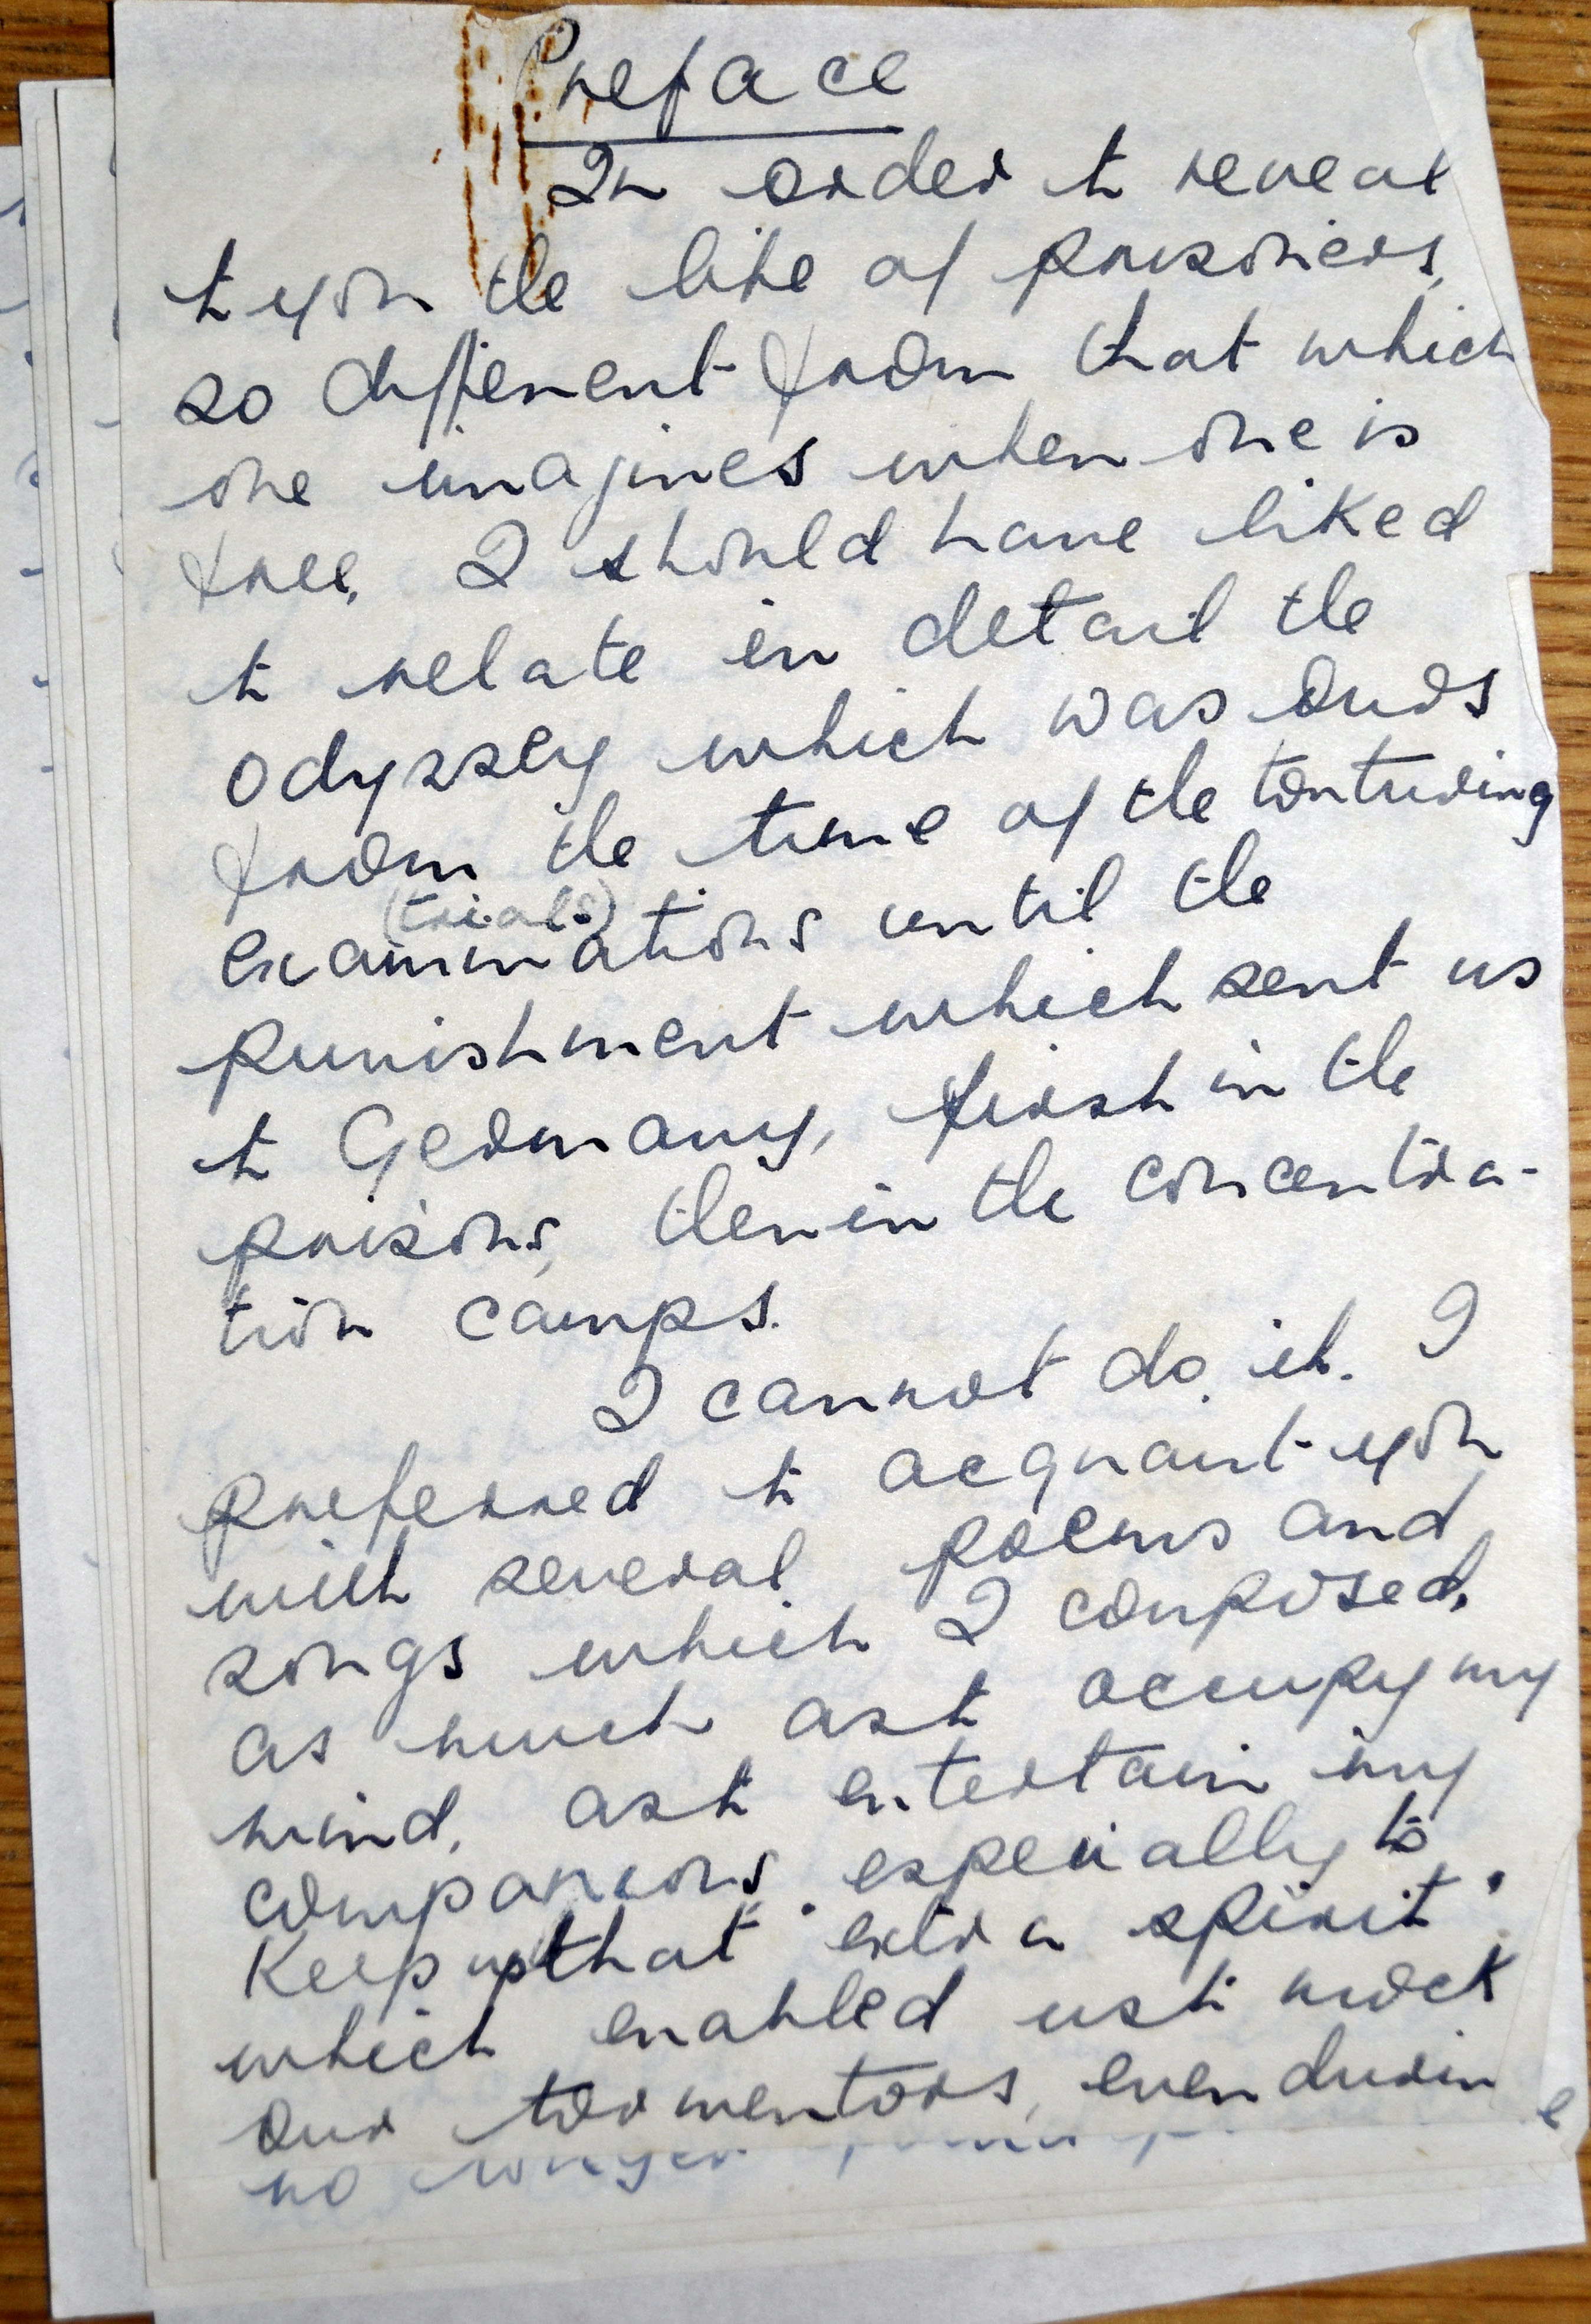 Preface
In order to reveal
to you the life of prisoners,
so different from that which
one imagines when one is
free, I should have liked
to relate in detail the
odyssey which was ours
from the time of the torturing
(trials)
examinations until the
punishment which sent us
to Germany, first in the
prisons, then in the concentra-
tion camps.
I cannot do it. I
preferred to acquaint you
with several poems and
songs which I composed,
as much as to occupy my
mind, as to entertain my
companions, especially to
keep up that extra spirit
which enabled us to mock
our tormentors, even durin
no longer